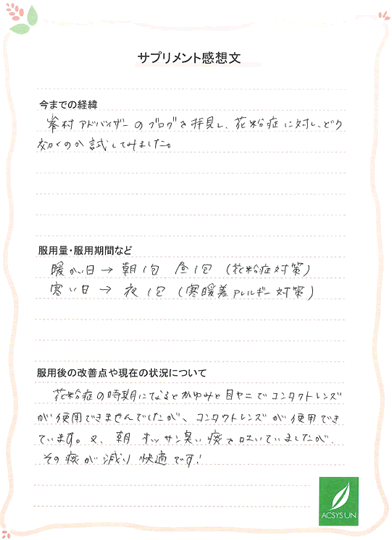 サプリメント感想文
今までの経緯
峯村アドバイザーのブログを拝見し、花粉症に対し、どう
効くのか試してみました。
服用量・服用期間など
暖かい日→朝1包 昼1包 (花粉症対策)
寒い日→夜1包 (寒暖差アレルギー対策)
服用後の改善点や現在の状況について
花粉症の時期になるとかゆみと目ヤニでコンタクトレンズ
が使用できませんでしたが、コンタクトレンズが使用でき
ています。又、朝オッサン臭い痰を吐いていましたが
その痰が減り快適です!
ACSYSUN